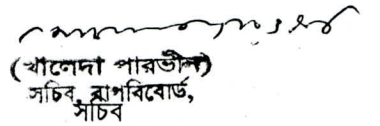 (খালেদা পারভীন)
সচিব, বাপবিবোর্ড,
সচিব